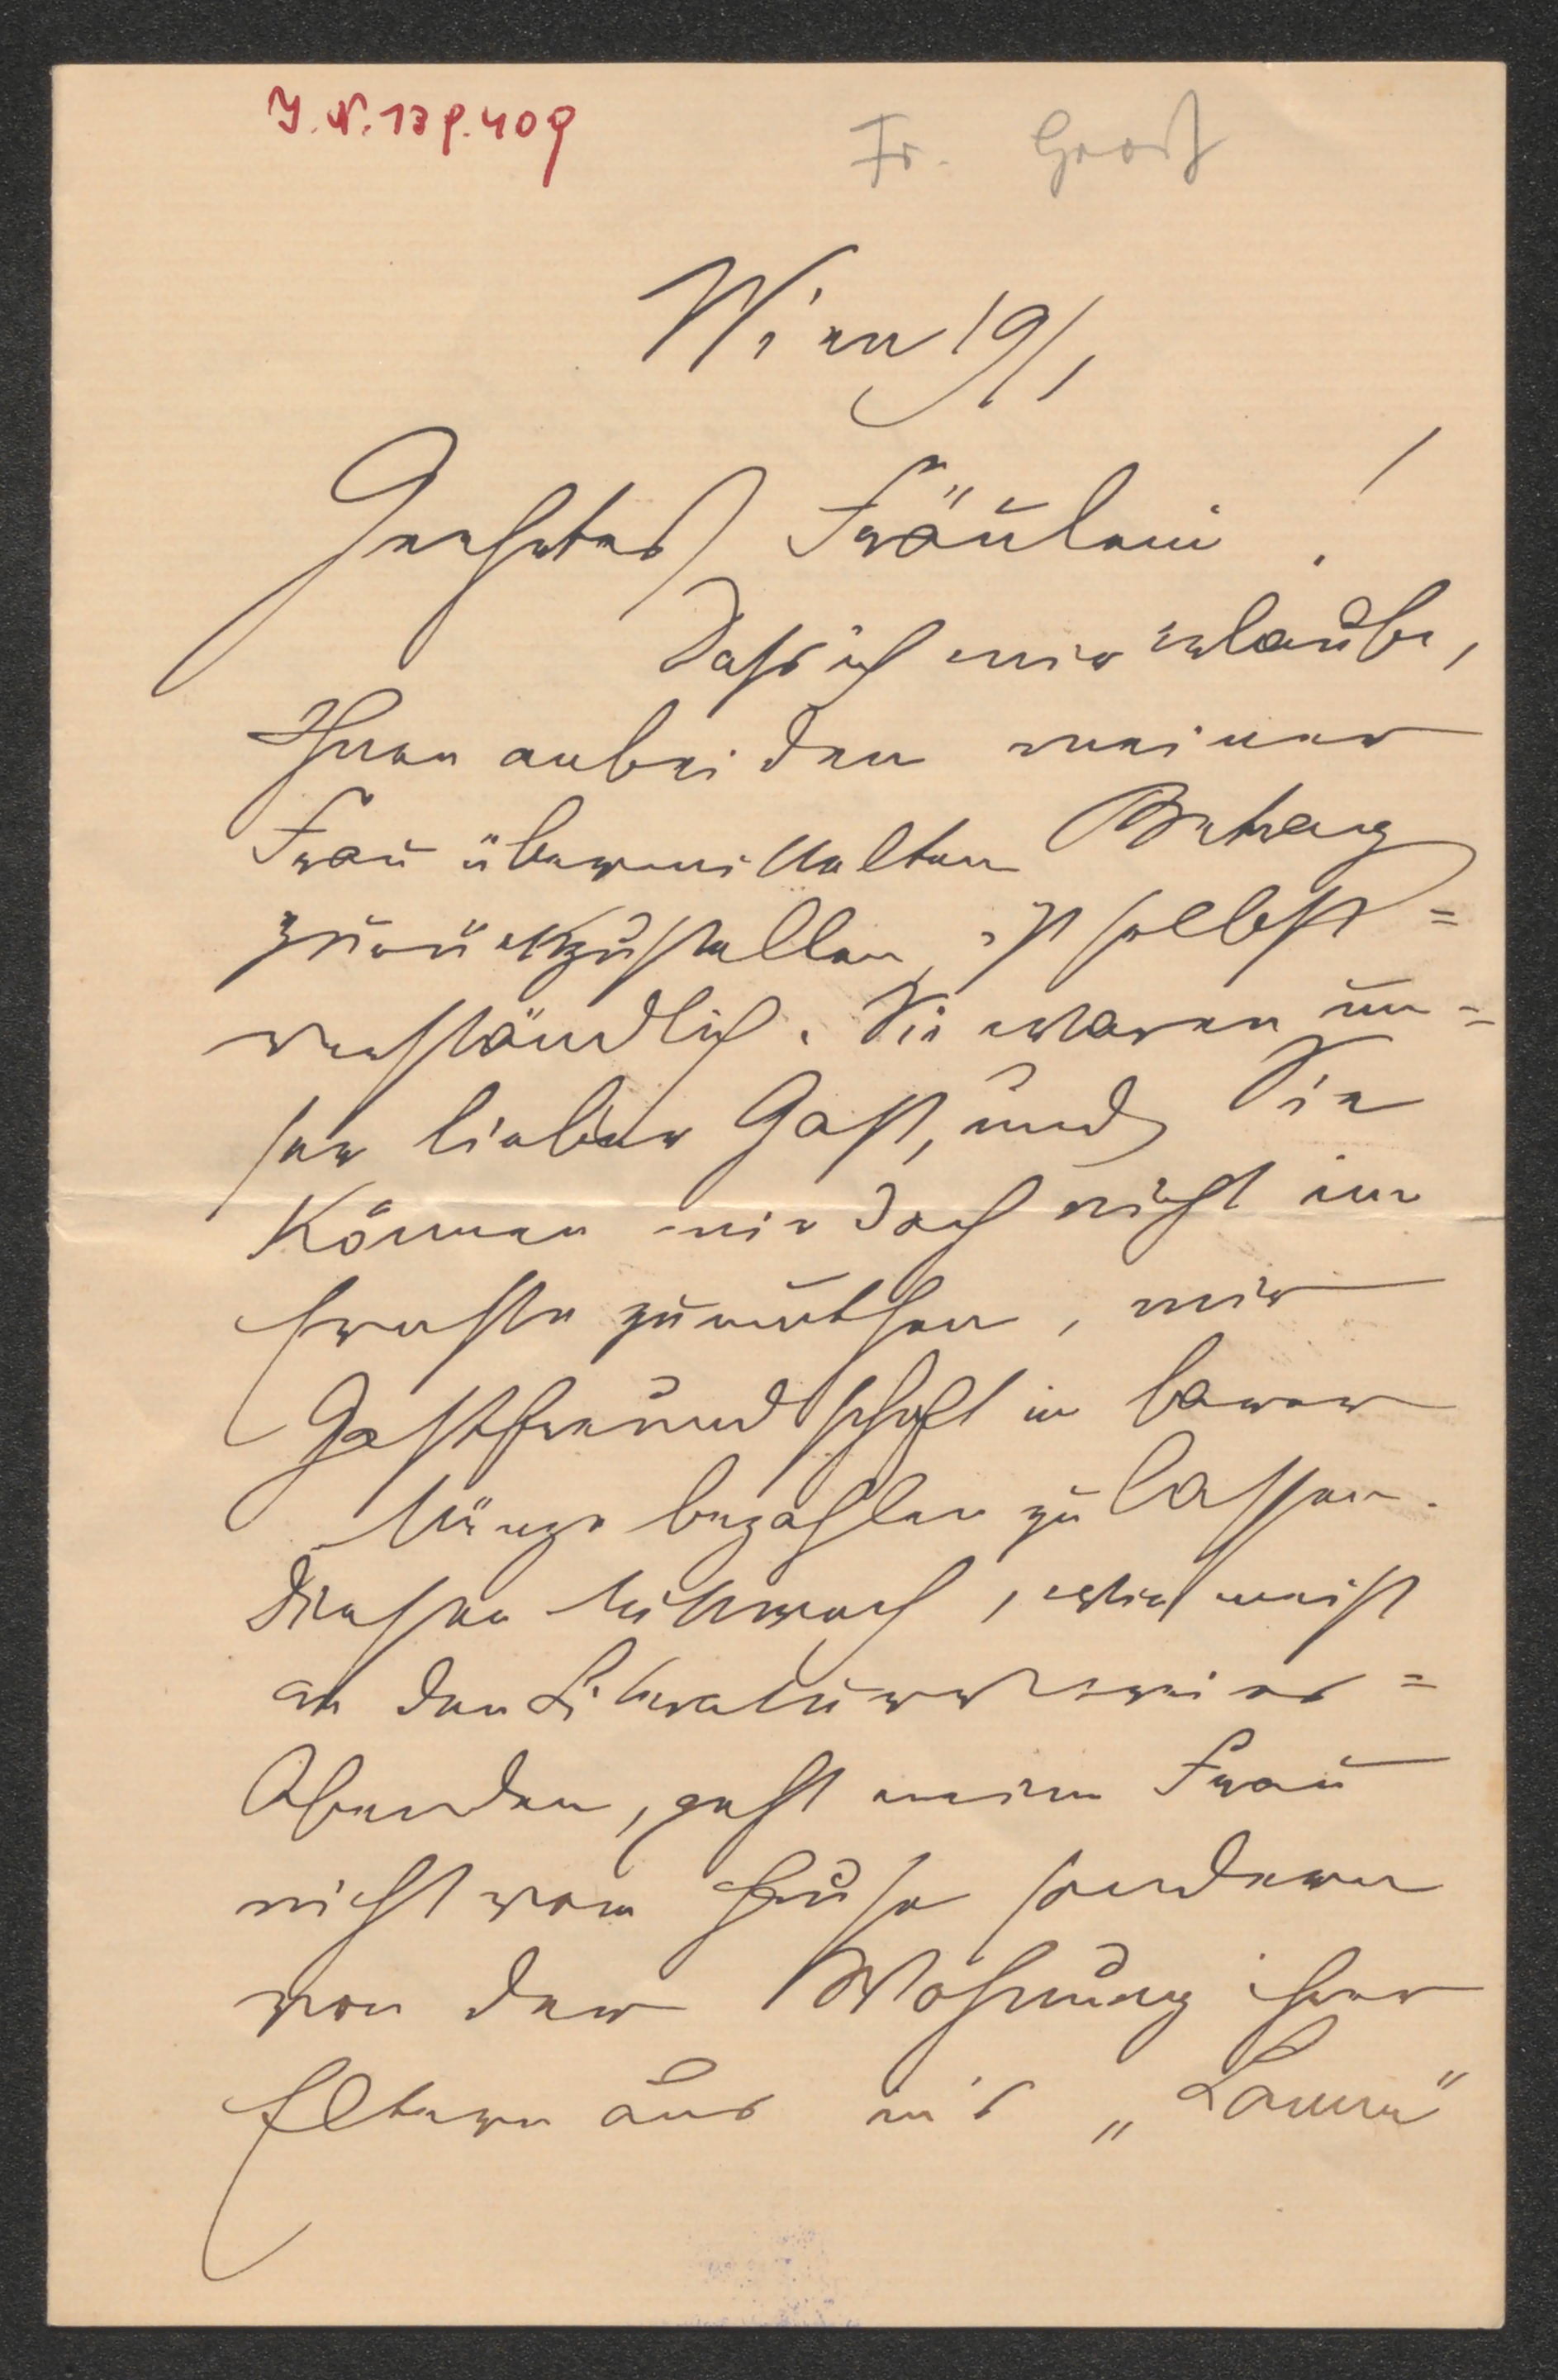 J. N. 139.409
Fr. Groß
Wien 19/1
Geehrtes Fräulein!
Dass ich mir erlaube,
Ihnen anbei den meiner
Frau übermittelten Betrag
zurückzustellen, ist selbst=
verständlich. Sie waren un=
ser lieber Gast, und Sie
können mir doch nicht im
Ernste zumuthen, mir
Gastfreundschaft in barer
Münze bezahlen zu lassen.
Diesen Mittwoch, wie meist
an den Literaturverein=
Abenden, geht meine Frau
nicht vom Hause sondern
von der Wohnung ihrer
Eltern aus in's „Lamm"